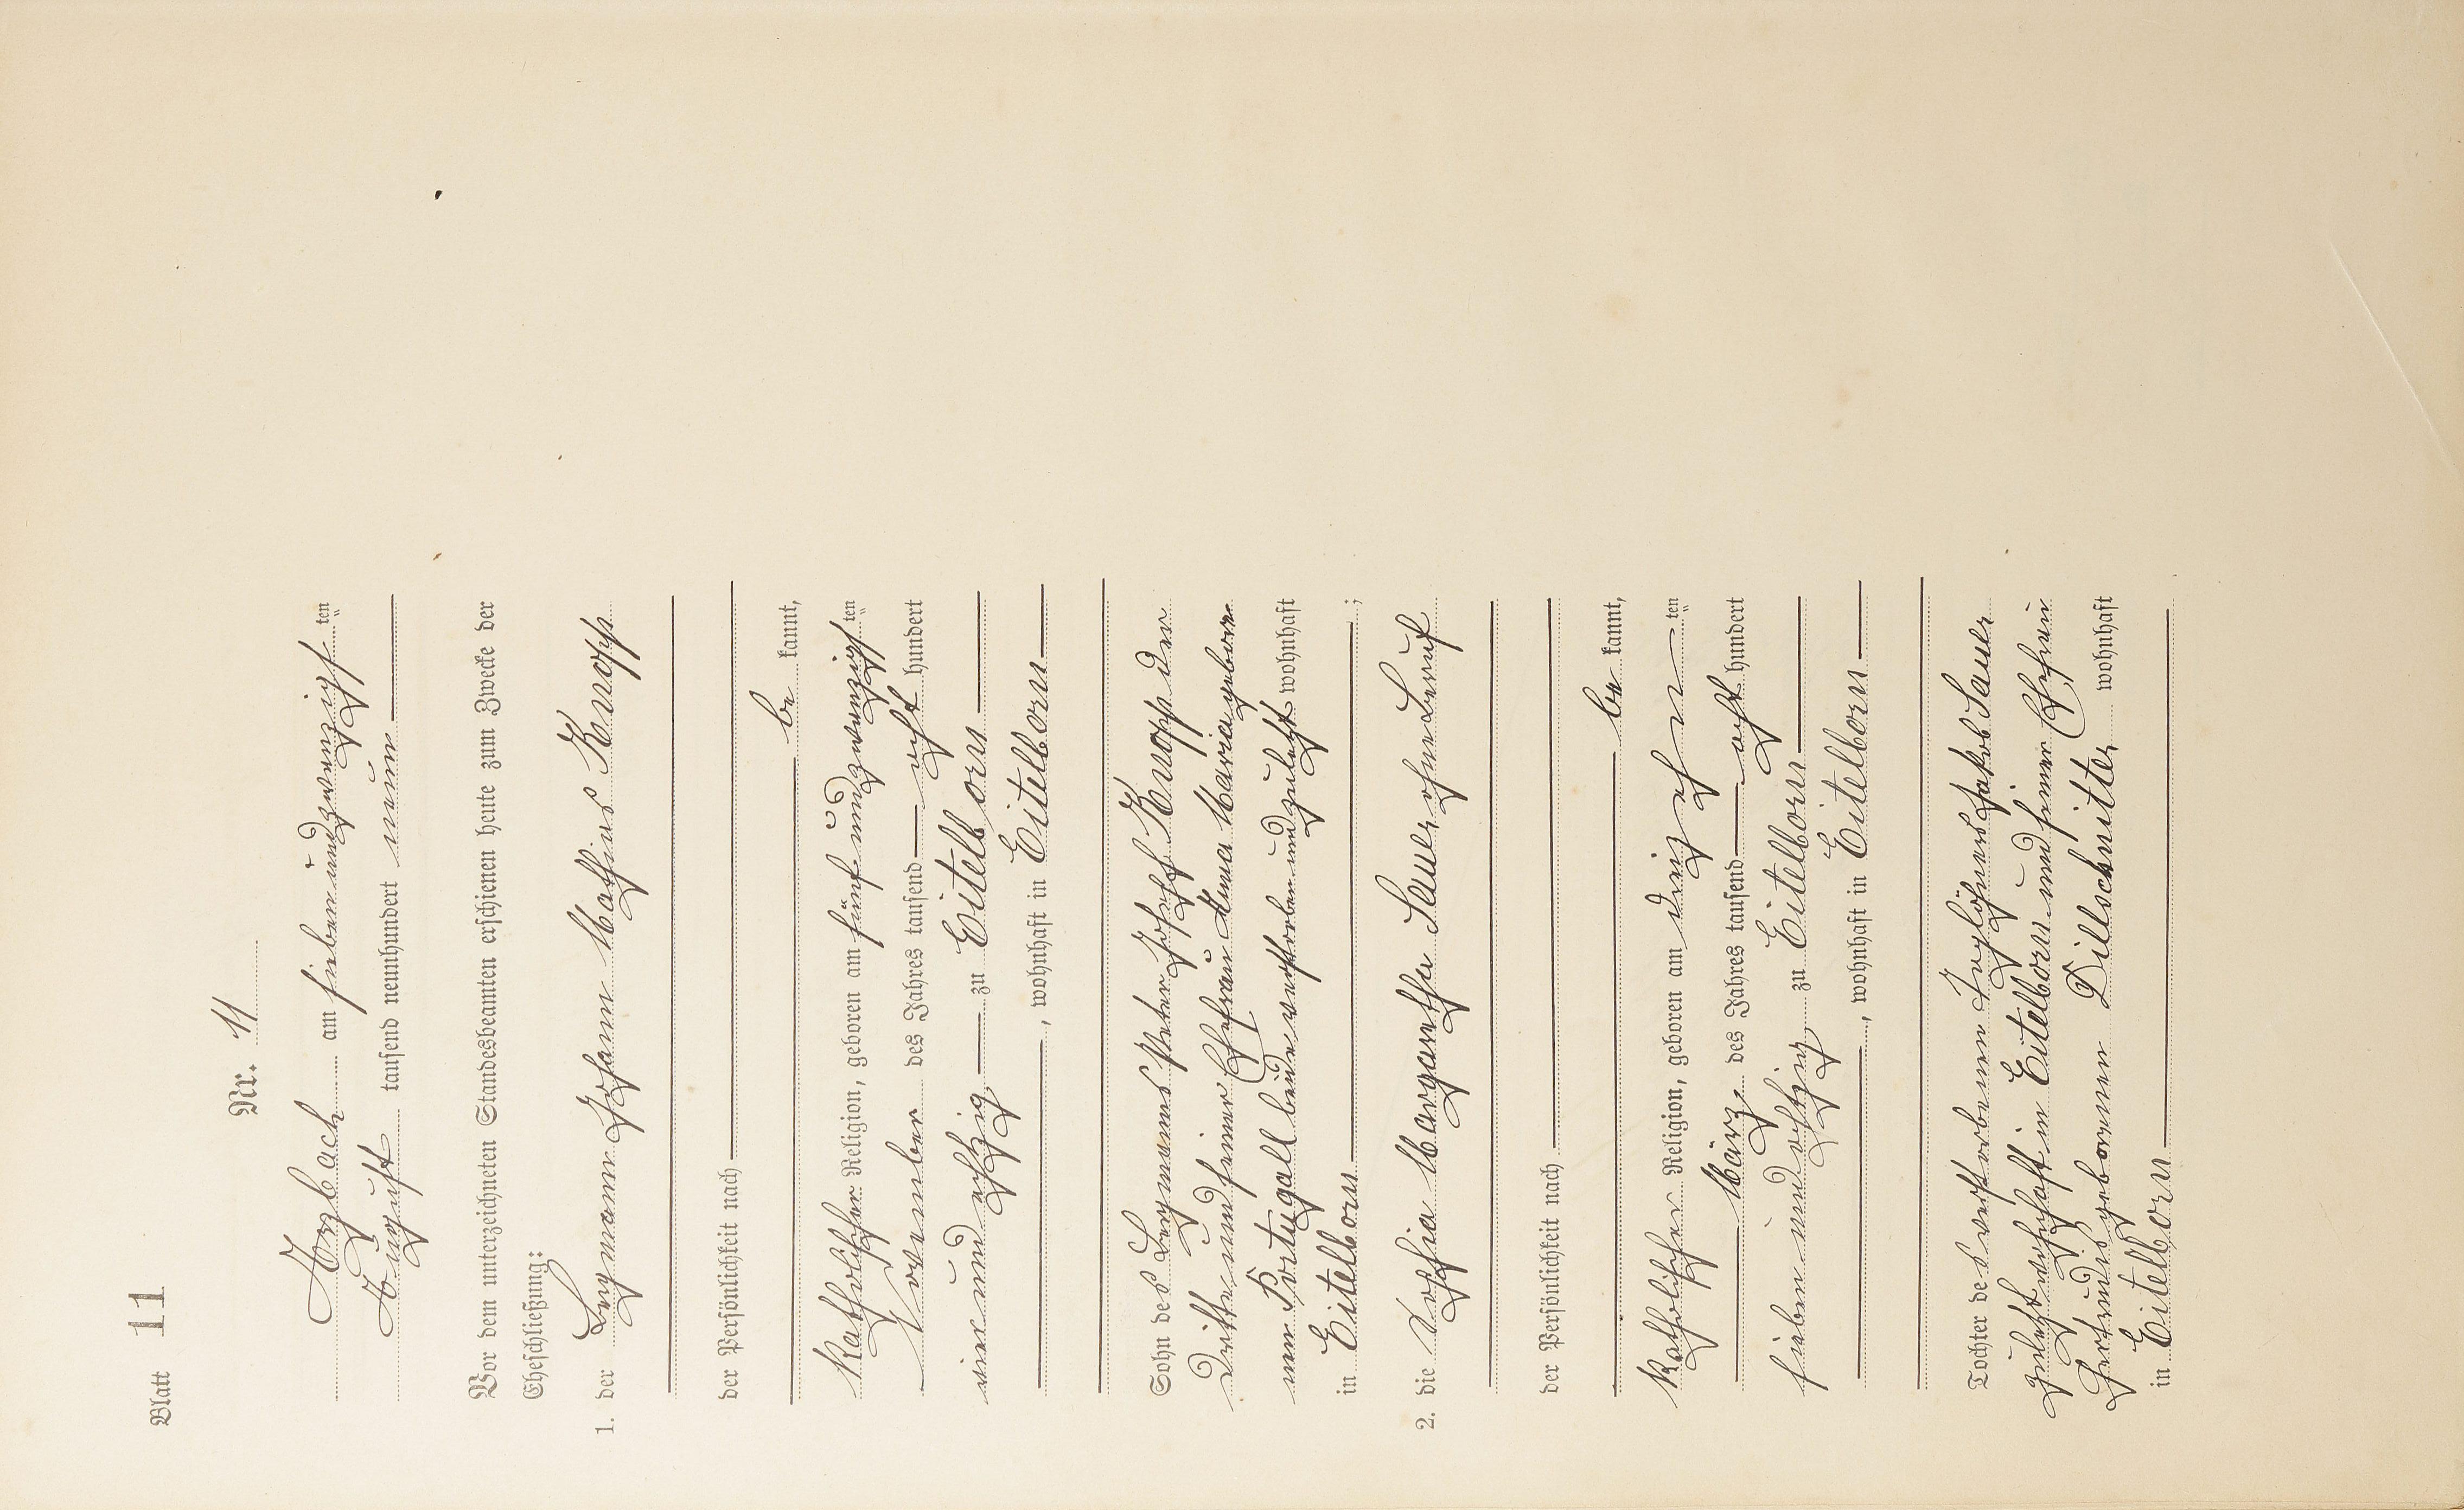 Blatt 11
Nr. 11
Arzbach am siebenundzwanzigsten
August tausend neunhundert neun
Vor dem unterzeichneten Standesbeamten erschienen heute zum Zwecke der
Eheschließung:
1. der Bergmann Johann Mathias Knopp
der Persönlichkeit nach
be kannt,
katholischer Religion, geboren am fünfundzwanzigsten
November des Jahres tausend acht hundert
vierundachtzig zu Eitelborn
, wohnhaft in Eitelborn
Sohn des Bergmanns Peter Josef Knopp der
Dritte und seiner Ehefrau Anna Maria gebore-
nen Portugall beide verstorben und zuletzt wohnhaft
in Eitelborn ;
2. die Sofia Margaretha Sauer, ohne Beruf
der Persönlichkeit nach
be kannt,
katholischer Religion, geboren am dreizehn ten
März des Jahres tausend acht hundert
siebenundachtzig zu Eitelborn
, wohnhaft in Eitelborn
Tochter des verstorbenen Taglöhners Jakob Sauer
zuletzt wohnhaft in Eitelborn und seiner Ehefrau
Gertrud geborenen Dillschnitter wohnhaft
in Eitelborn